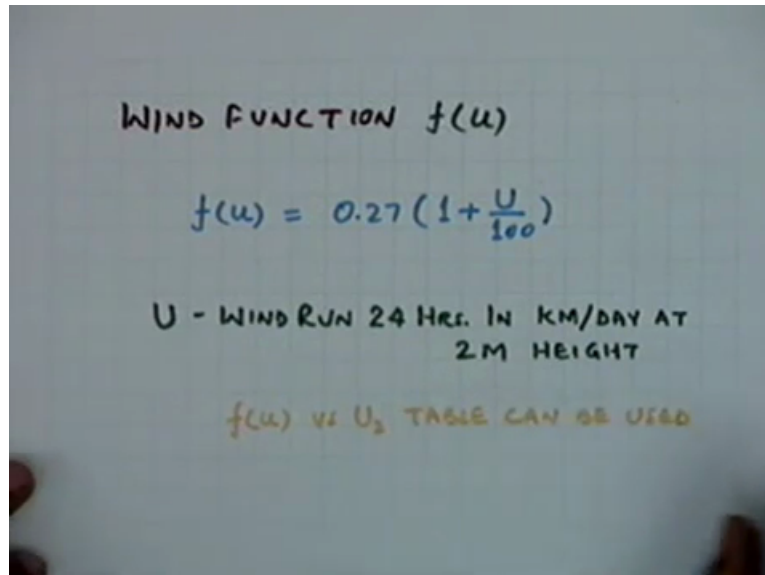 WIND FUNCTION f(u)
f(u) = 0.27 (1 + U/100)
U - WIND RUN 24 HRS. IN KM/DAY AT
2M HEIGHT
f(u) VS U₂ TABLE CAN BE USED